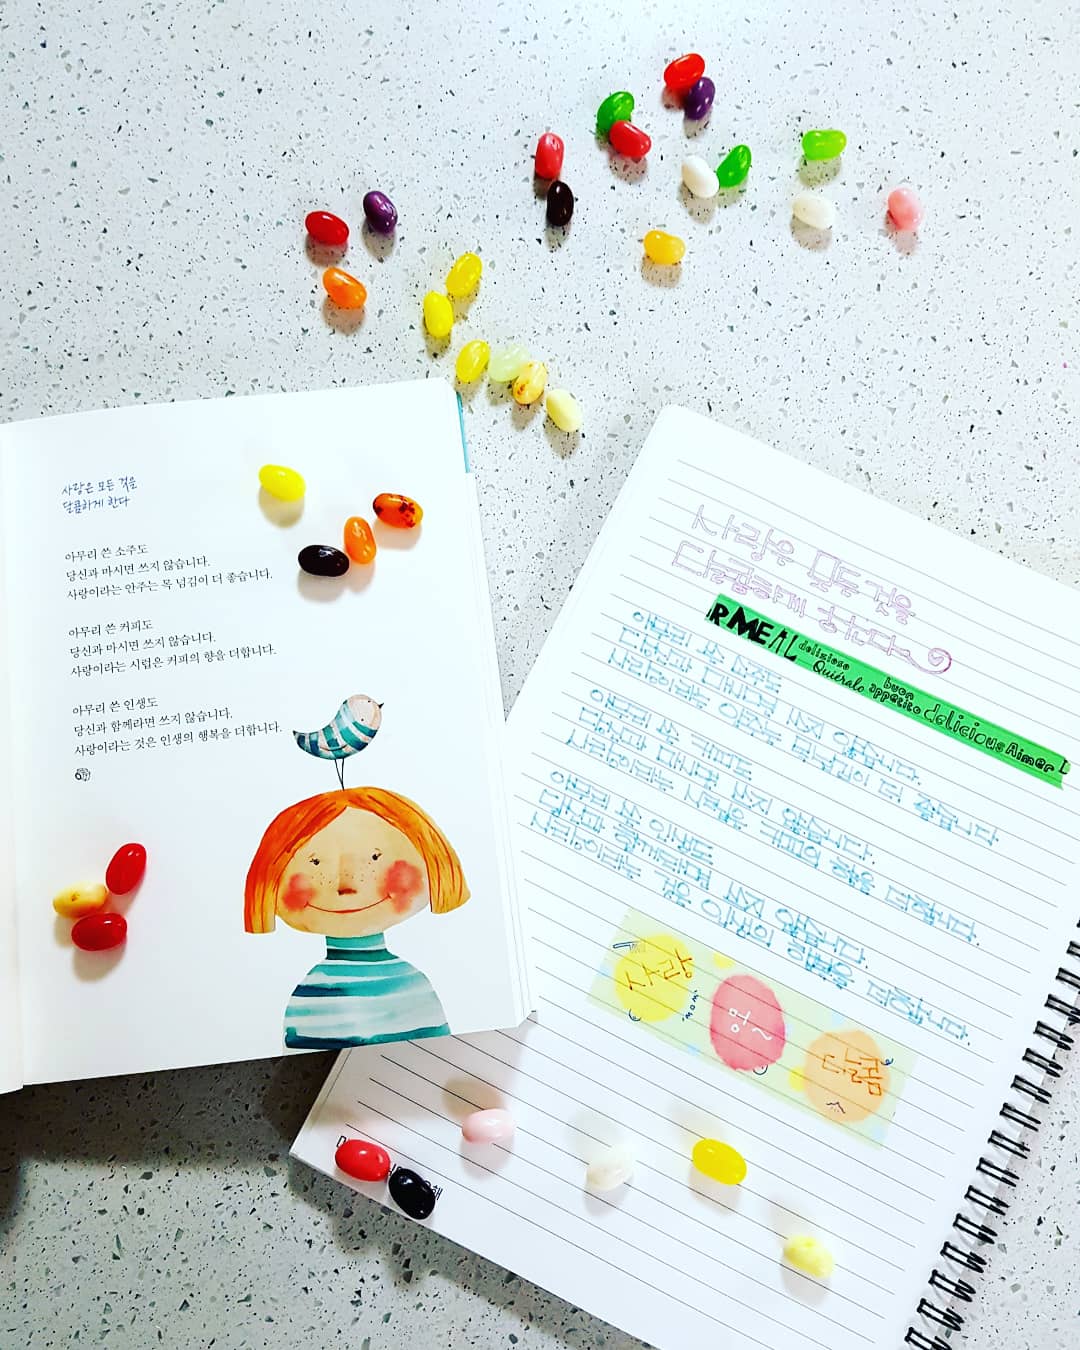 사랑은 모든 것을
달콤하게 한다
아무리 쓴 소주도
당신과 마시면 쓰지 않습니다.
사랑이라는 안주는 목 넘김이 더 좋습니다.
아무리 쓴 커피도
당신과 마시면 쓰지 않습니다.
사랑이라는 시럽은 커피의 향을 더합니다.
아무리 쓴 인생도
당신과 함께라면 쓰지 않습니다.
사랑이라는 것은 인생의 행복을 더합니다.
사랑은 모든 것을
달콤하게 한다
RMEAL delizioso Quiéralo buon appetito delicious Aimer
아무리 쓴 소주도
당신과 마시면 쓰지 않습니다.
사랑이라는 안주는 목 넘김이 더 좋습니다
아무리 쓴 커피도
당신과 마시면 쓰지 않습니다.
사랑이라는 시럽은 커피의 향을 더합니다.
아무리 쓴 인생도
당신과 함께라면 쓰지 않습니다.
사랑이라는 것은 인생의 행복을 더합니다.
사랑
"wow"
멍~
달콤